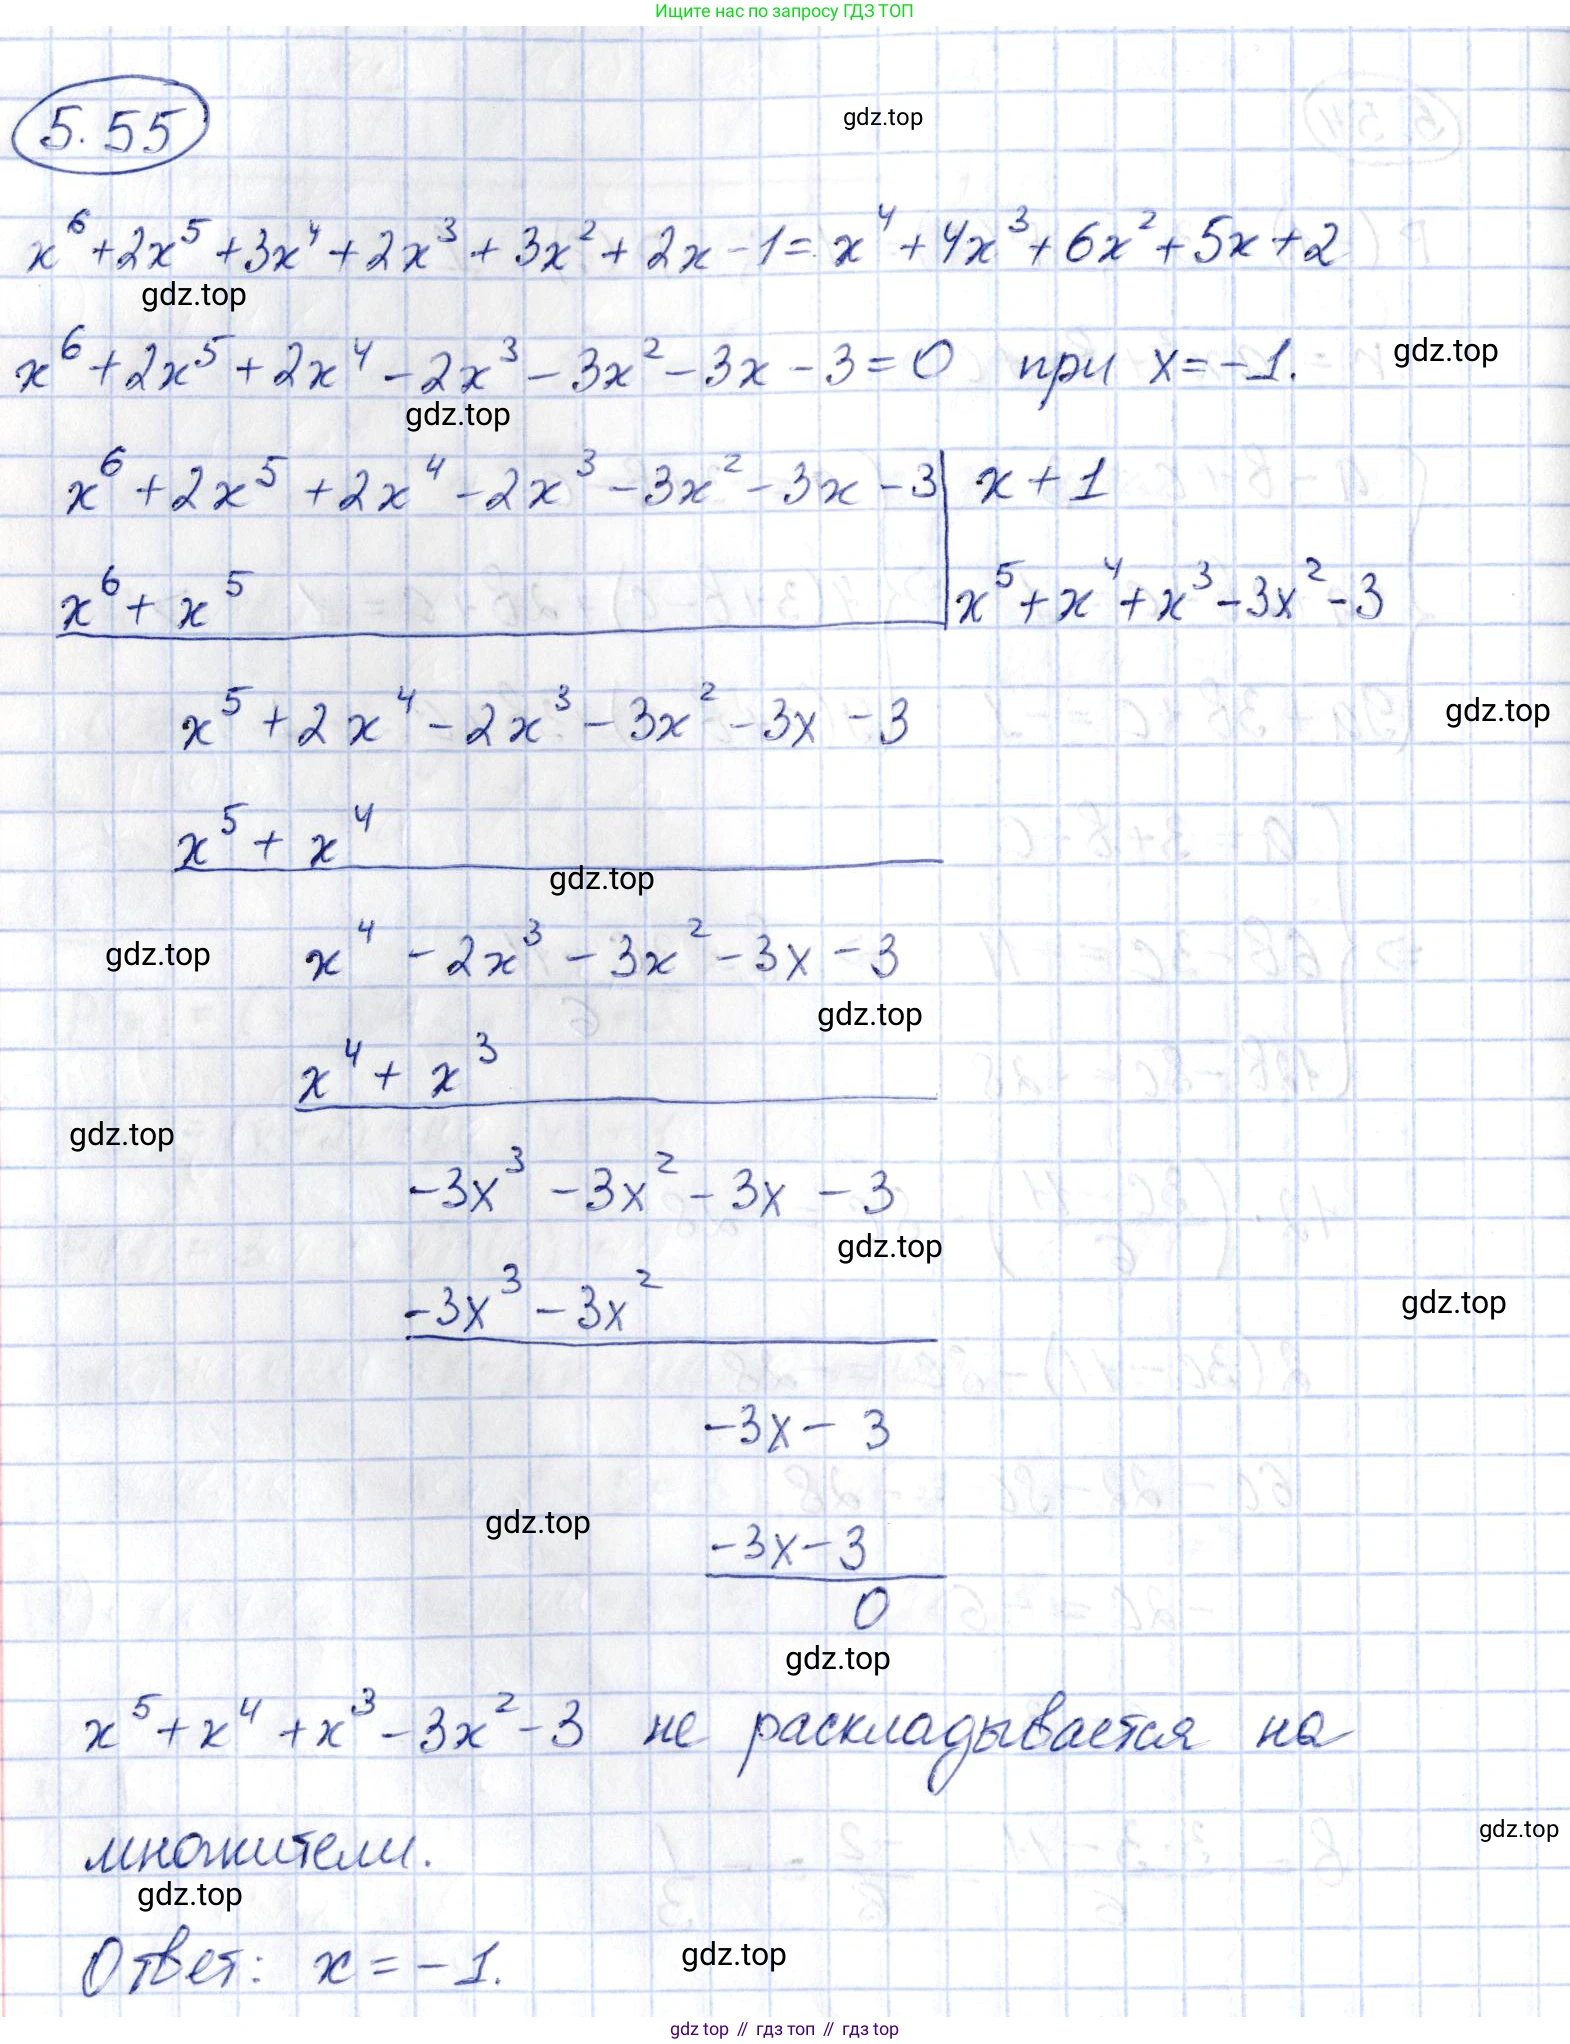 Ищите нас по запросу ГДЗ ТОП
5.55
gdz.top
x⁶+2x⁵+3x⁴+2x³+3x²+2x-1=x⁴+4x³+6x²+5x+2
gdz.top
x⁶+2x⁵+2x⁴-2x³-3x²-3x-3=0 при x=-1.
gdz.top
gdz.top
x⁶+2x⁵+2x⁴-2x³-3x²-3x-3 | x+1
x⁶+x⁵ | x⁵+x⁴+x³-3x²-3
x⁵+2x⁴-2x³-3x²-3x-3
gdz.top
x⁵+x⁴
gdz.top
x⁴-2x³-3x²-3x-3
gdz.top
gdz.top
x⁴+x³
gdz.top
-3x³-3x²-3x-3
gdz.top
-3x³-3x²
gdz.top
-3x-3
gdz.top
-3x-3
0
gdz.top
x⁵+x⁴+x³-3x²-3 не раскладывается на
множители.
gdz.top
gdz.top
Ответ: x=-1.
gdz.top
gdz top // гдз топ // gdz top